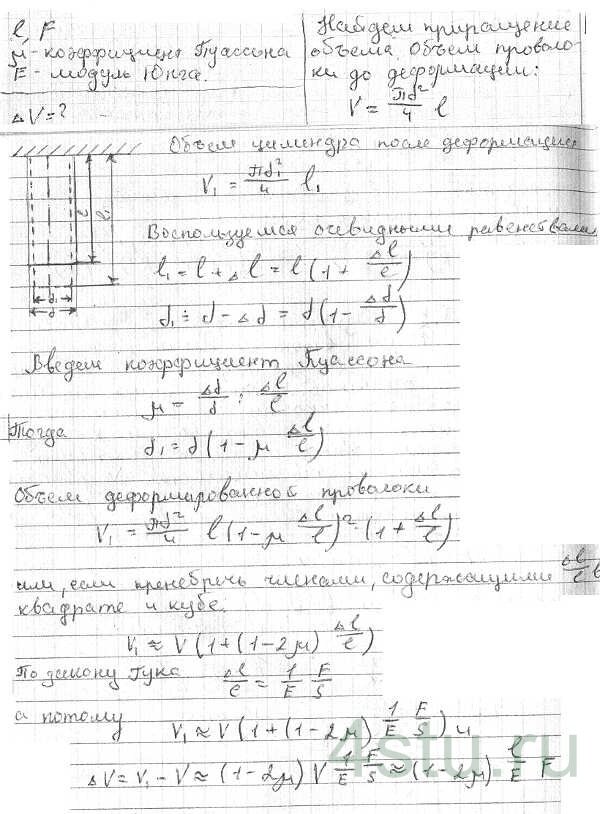 l, F
μ - коэффициент Пуассона
E - модуль Юнга.
ΔV = ?
Найдем приращение
объема. Объем проволо-
ки до деформации:
V = πd²/4 l
Объем цилиндра после деформации
V₁ = πd₁²/4 l₁
Воспользуемся очевидными равенствами
l₁ = l + Δl = l (1 + Δl/l)
d₁ = d - Δd = d (1 - Δd/d)
l
l₁
d₁
d
Введем коэффициент Пуассона
μ = Δd/d : Δl/l
Тогда
d₁ = d (1 - μ Δl/l)
Объем деформированной проволоки
V₁ = πd²/4 l (1 - μ Δl/l)² · (1 + Δl/l)
или, если пренебречь членами, содержащими Δl/l в
квадрате и кубе.
V₁ ≈ V (1 + (1 - 2μ) Δl/l)
По закону Гука Δl/l = 1/E F/S
а потому
V₁ ≈ V (1 + (1 - 2μ) 1/E F/S) и
ΔV = V₁ - V ≈ (1 - 2μ) V 1/E F/S ≈ (1 - 2μ) l/E F
4stu.ru